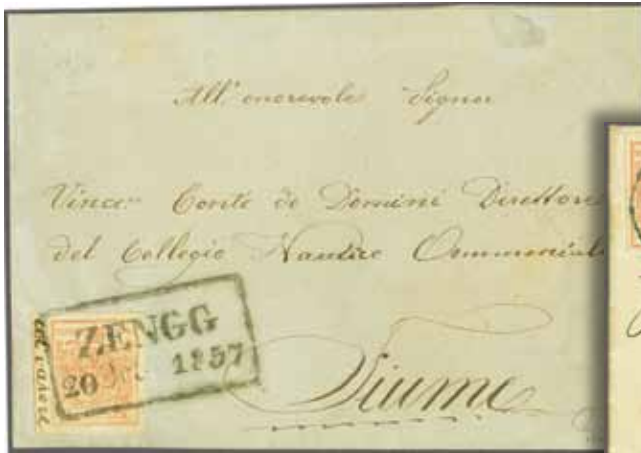 All' onorevole Signor
Vinc.. Conte de Domini Direttore
del Collegio Nautico Commerciale
ZENGG
20 1857
Fiume